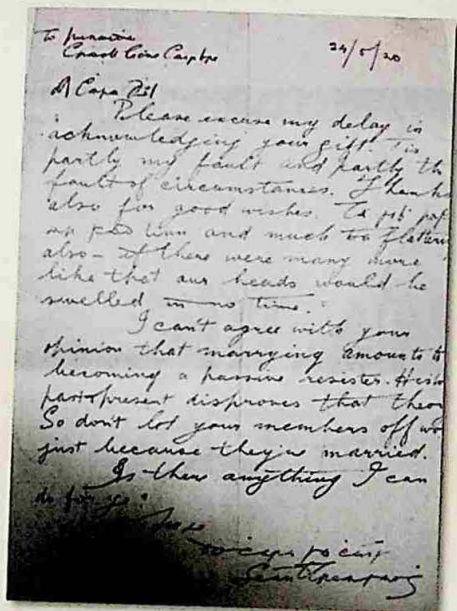 To
24/5/20
A Cara Dil
Please excuse my delay in
acknowledging your gift. Tis
partly my fault and partly th
fault of circumstances. Thanks
also for good wishes.
and much too flatteri
also – if there were many more
like that our heads would be
swelled in no time.
I can't agree with your
opinion that marrying amounts to
becoming a passive resister. Histo
past present disproves that theor
So don't let your members off wo
just because they're married.
Is there anything I can
do for ye?